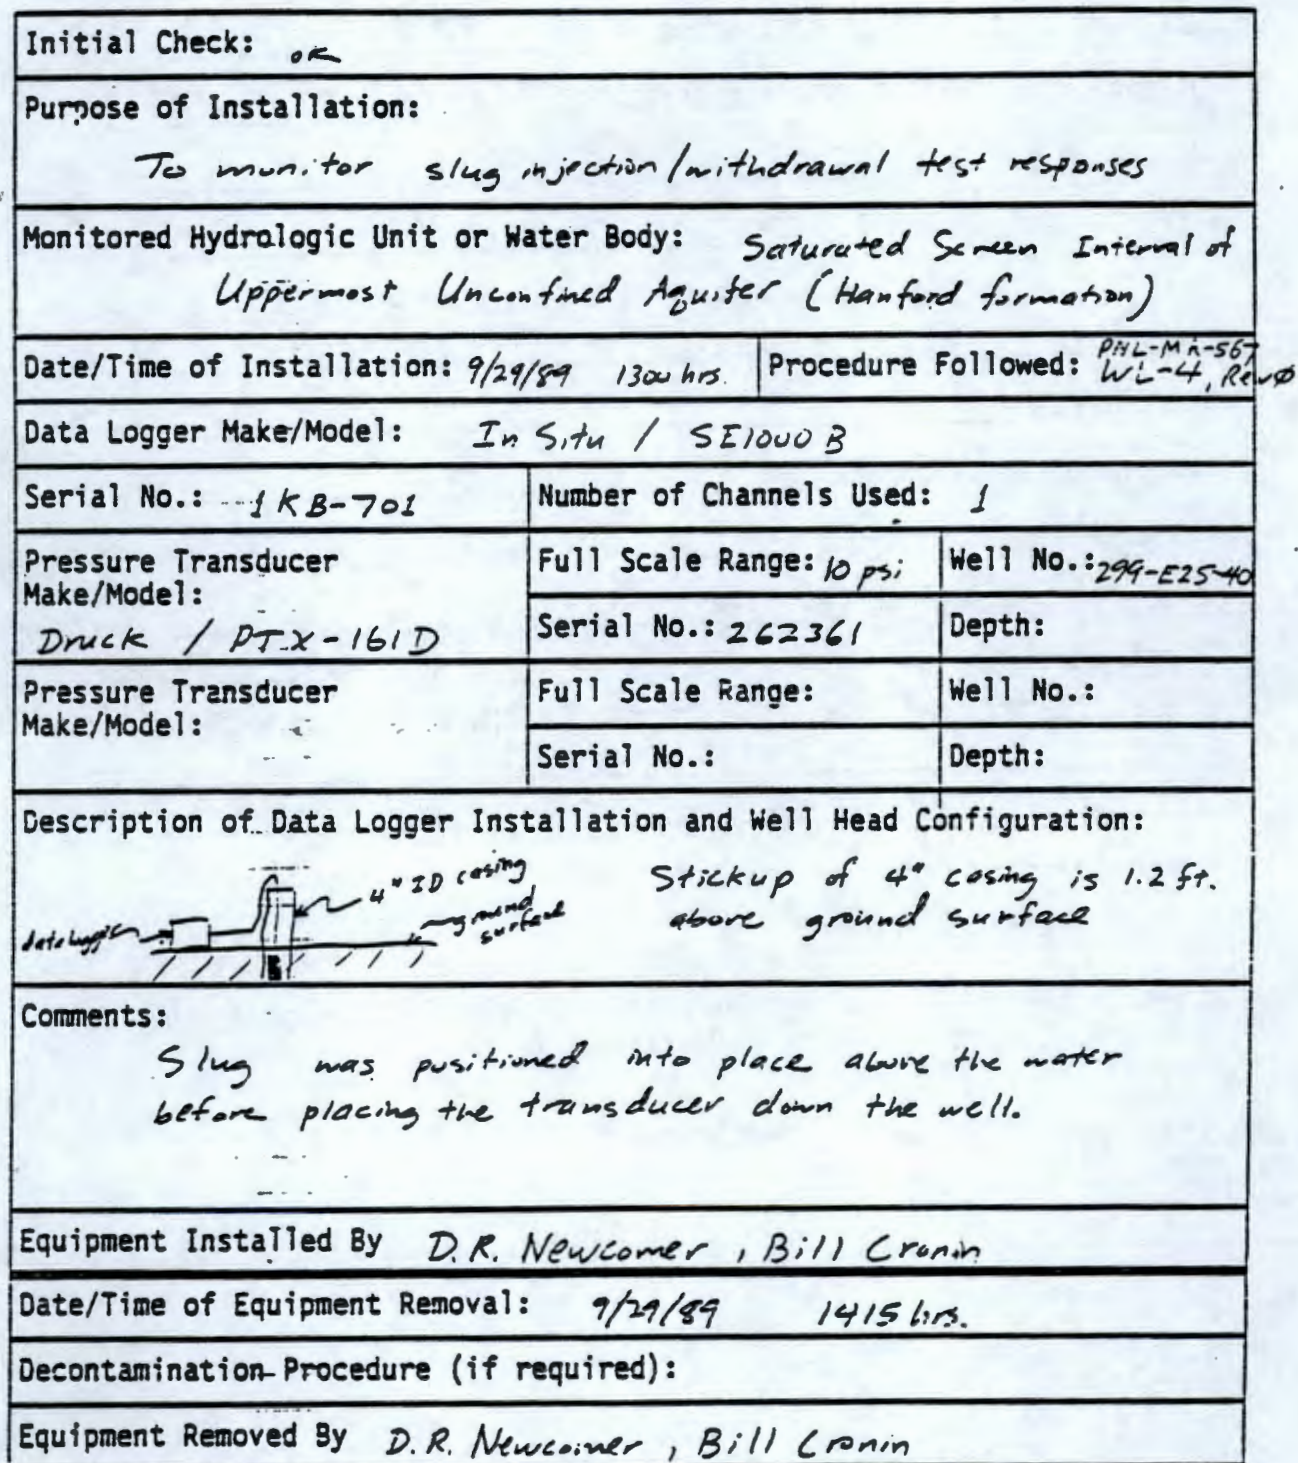 Initial Check: OK
Purpose of Installation:
To monitor slug injection/withdrawal test responses
Monitored Hydrologic Unit or Water Body: Saturated Screen Interval of
Uppermost Unconfined Aquifer (Hanford formation)
Date/Time of Installation: 9/29/89 1300 hrs. Procedure Followed: PNL-MA-567
WL-4, Rev Ø
Data Logger Make/Model: In Situ / SE1000B
Serial No.: 1KB-701 Number of Channels Used: 1
Pressure Transducer Full Scale Range: 10 psi Well No.: 299-E25-40
Make/Model:
Druck / PTX-161D Serial No.: 262361 Depth:
Pressure Transducer Full Scale Range: Well No.:
Make/Model:
Serial No.: Depth:
Description of Data Logger Installation and Well Head Configuration:
4" ID casing Stickup of 4" casing is 1.2 ft.
ground above ground surface
surface
Comments:
Slug was positioned into place above the water
before placing the transducer down the well.
Equipment Installed By D.R. Newcomer, Bill Cronin
Date/Time of Equipment Removal: 9/29/89 1415 hrs.
Decontamination Procedure (if required):
Equipment Removed By D.R. Newcomer, Bill Cronin